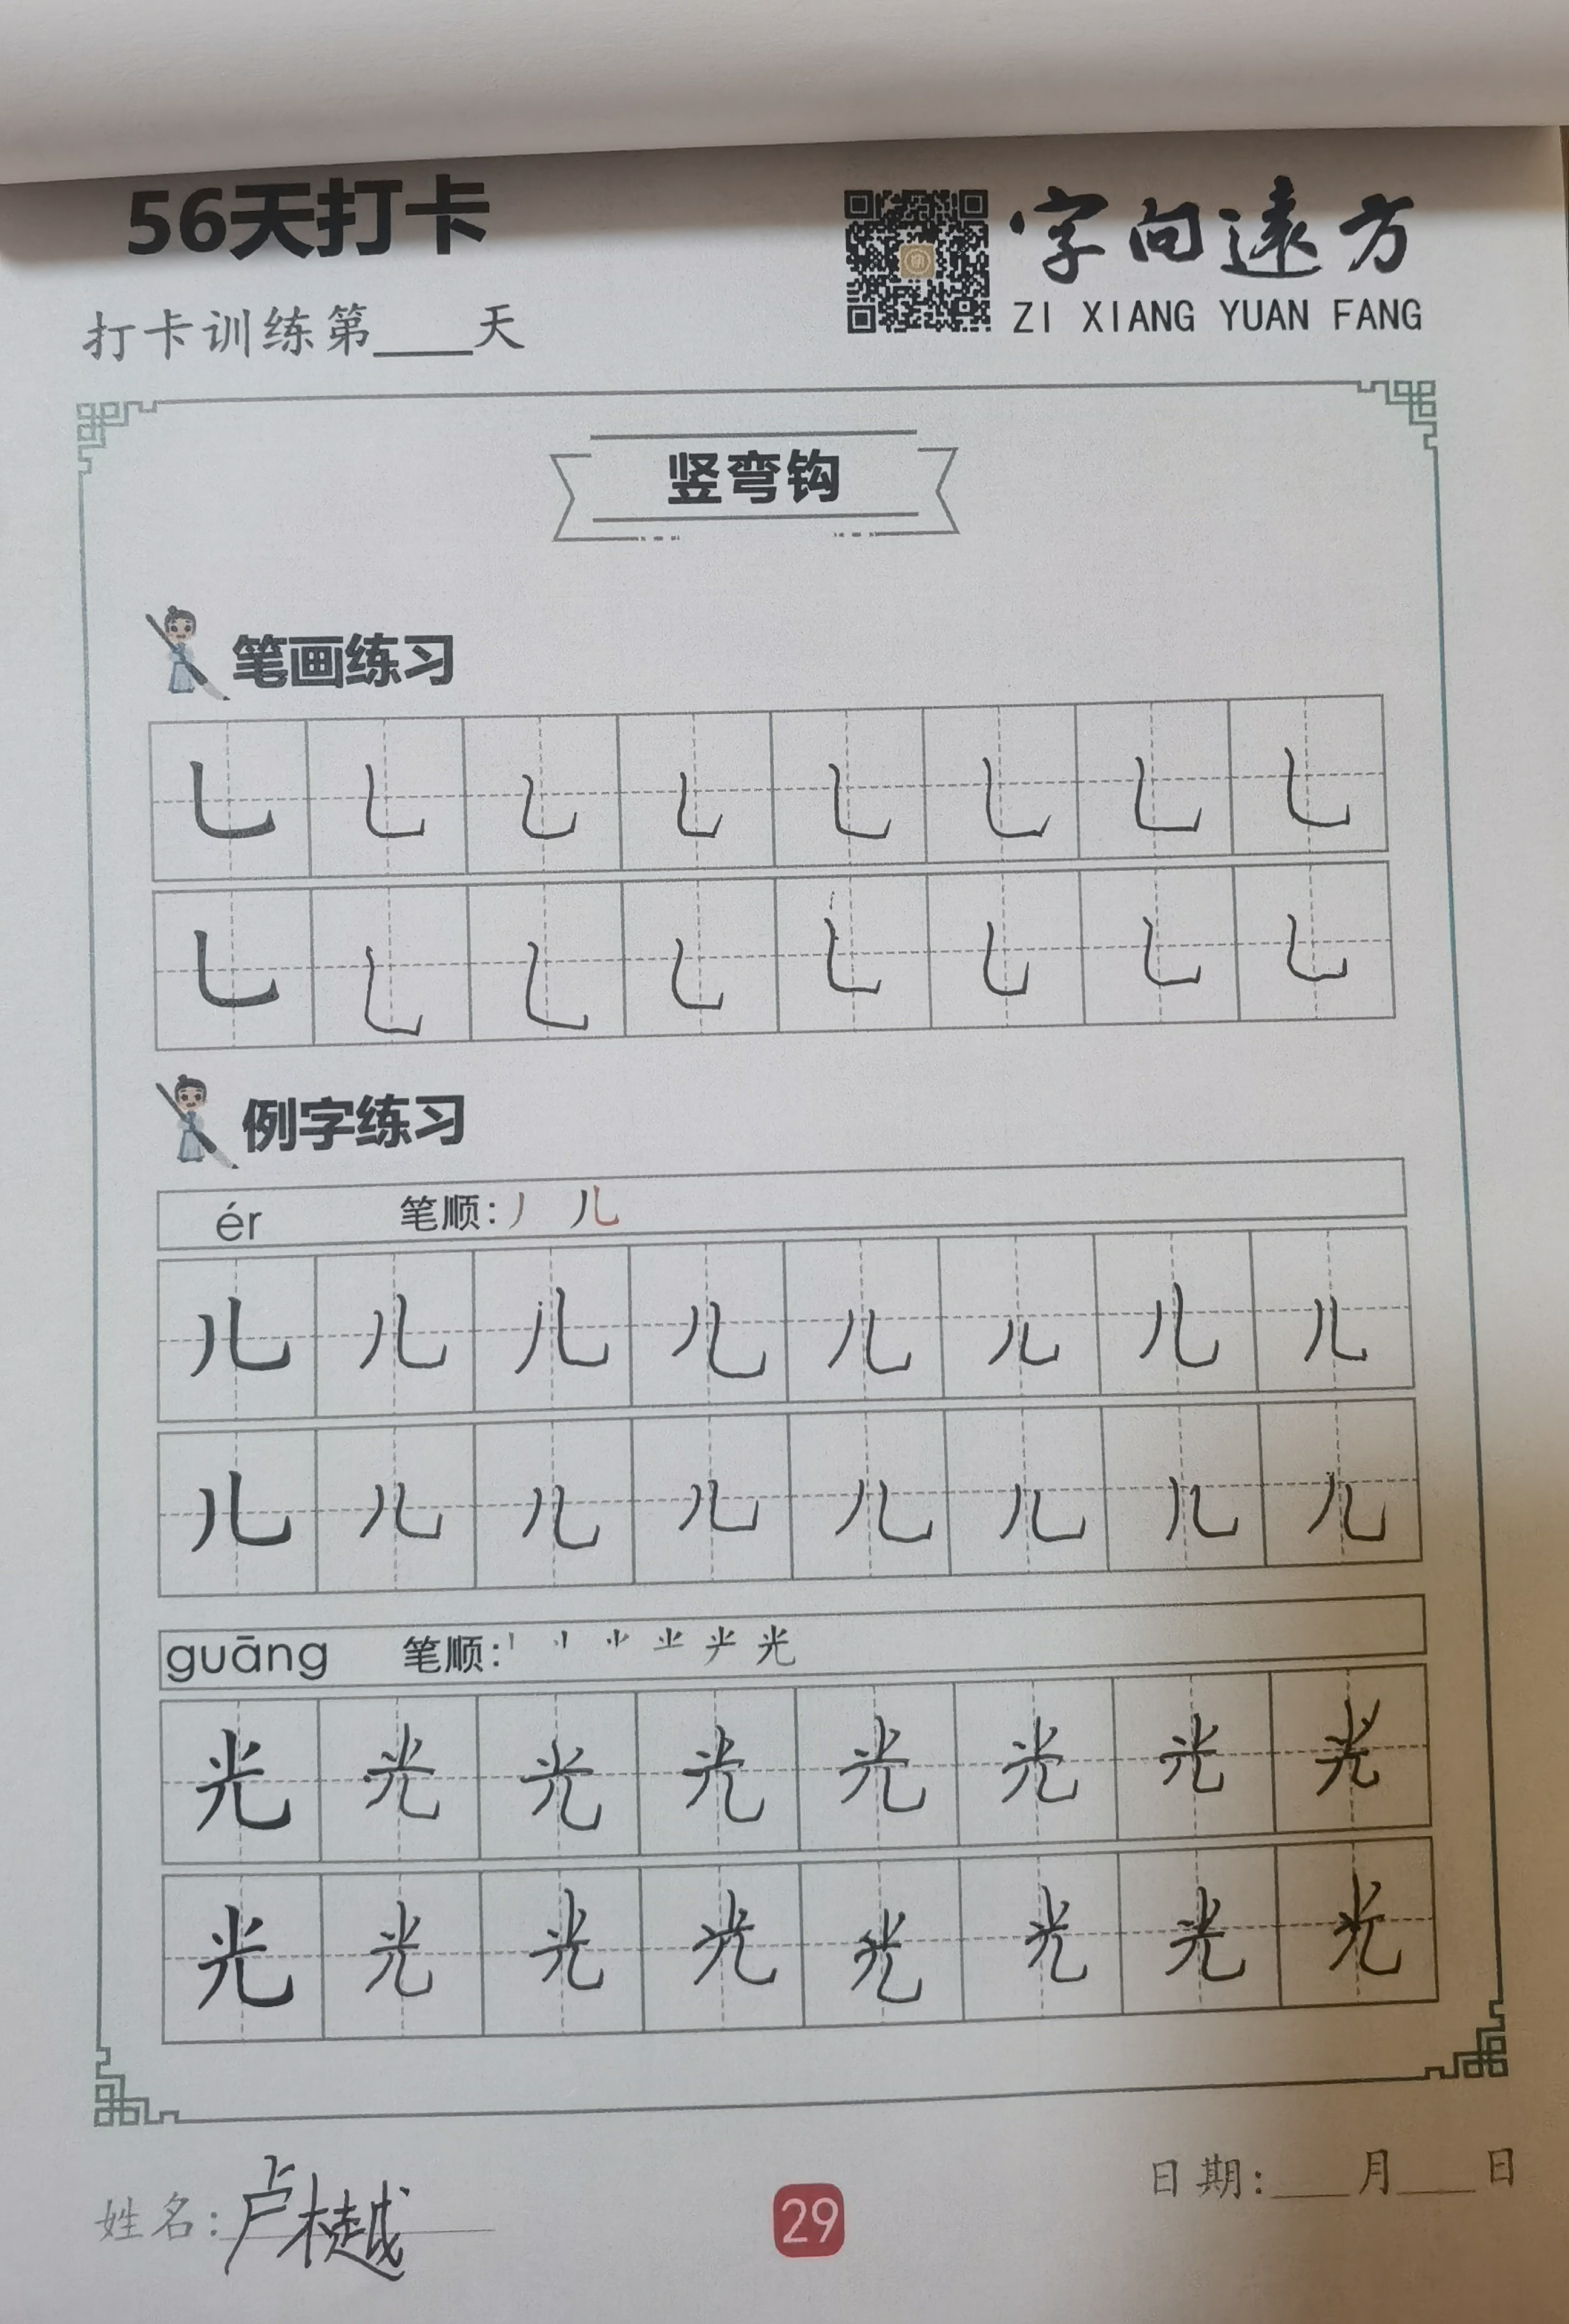 56天打卡
字向遠方
ZI XIANG YUAN FANG
打卡训练第____天
竖弯钩
笔画练习
㇄ ㇄ ㇄ ㇄ ㇄ ㇄ ㇄ ㇄
㇄ ㇄ ㇄ ㇄ ㇄ ㇄ ㇄ ㇄
例字练习
ér 笔顺: 丿 儿
儿 儿 儿 儿 儿 儿 儿 儿
儿 儿 儿 儿 儿 儿 儿 儿
guāng 笔顺: 光
光 光 光 光 光 光 光 光
光 光 光 光 光 光 光 光
姓名: 卢
29
日期:___月___日